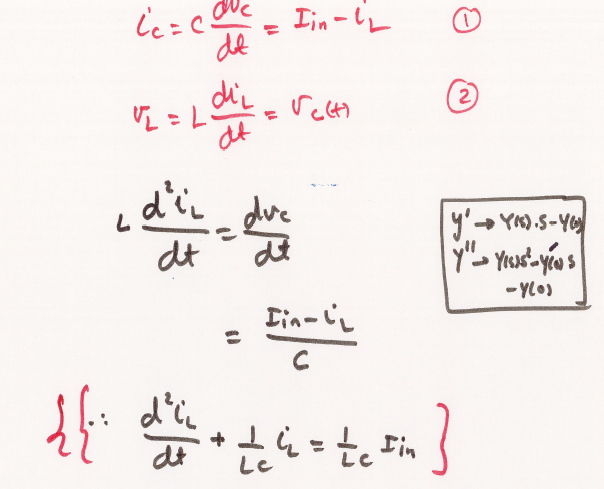 i_c = C dv_c/dt = I_in - i_L ①
v_L = L di_L/dt = v_c(t) ②
L d²i_L/dt = dv_c/dt
y' → Y(s).S - Y(0)
y'' → Y(s)S² - Y'(0)S
- Y(0)
= I_in - i_L / C
{{∴ d²i_L/dt + 1/LC i_L = 1/LC I_in }